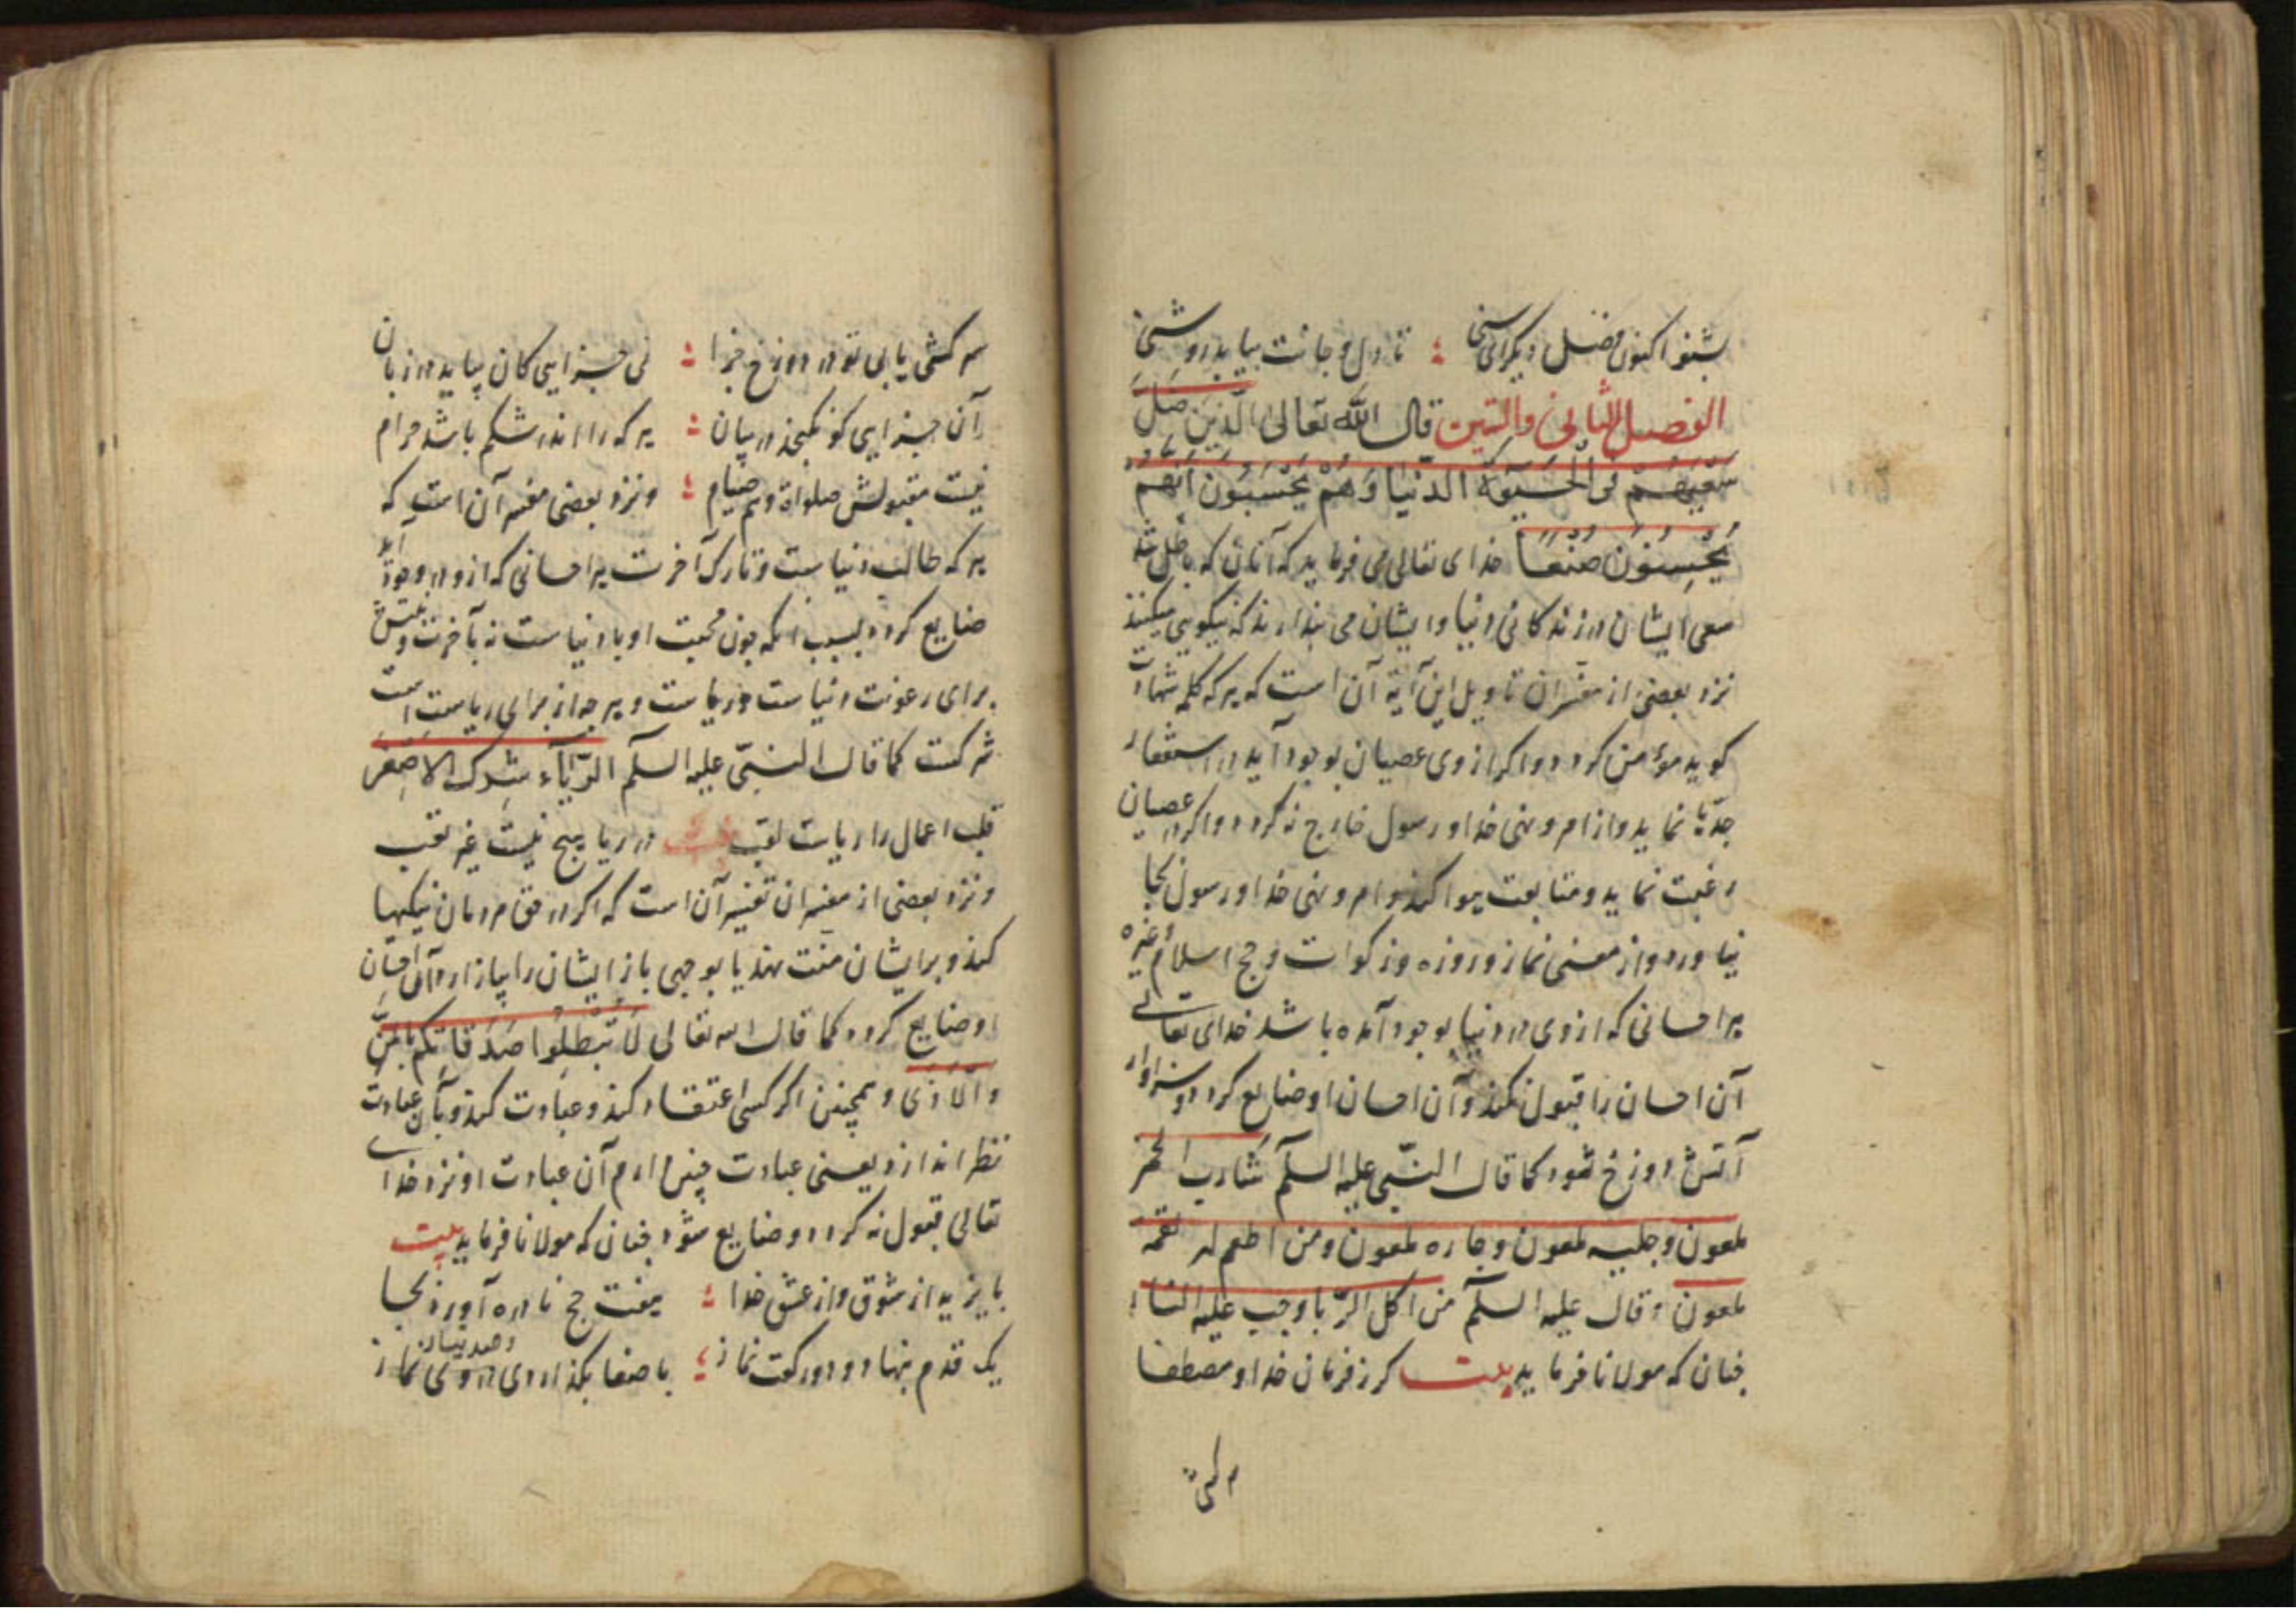 بشنو اکنون فصل دیکر ای سنی ؛ تا دل و جانت بیابد روشنی
الفصل الثانی والستین قال الله تعالی الَّذینَ ضَلَّ
سَعْیُهُمْ فی الْحَیٰوةِ الدنْیَا وَهُمْ یَحْسَبُونَ اَنَّهُمْ
یُحْسِنُونَ صُنْعًا خدای تعالی می فرماید که آنان که باطل شد
سعی ایشان در زندکانی دنیا و ایشان می پندارند که نیکویی میکنند
نزد بعضی از مفسران تاویل این آیة آن است که هرکه کلمه شهادت
کوید مؤمن کردد و اکر از وی عصیان بوجود آید در استغفار
جدّ نماید و از امر و نهی خدا و رسول خارج نه کردد و اکر در عصیان
رغبت نماید و متابعت هوا کند و امر و نهی خدا و رسول بجا
نیاورد و از معنی نماز و روزه و زکوات و حج اسلام و غیره
هر احسانی که از وی در دنیا بوجود آمده باشد خدای تعالی
آن احسان را قبول نکند و آن احسان او ضایع کردد و سزاوار
آتش دوزخ شود کما قال النبّی علیه السلّم شَارب الخمر
ملعون و جلیسه ملعون و جاره ملعون ومن اطعم له لقمة
ملعون و قال علیه السلّم من اکل الرّبا وجب علیه النار
چنان که مولانا فرماید بیت کر ز فرمان خدا و مصطفا
سرکشی یابی تو در دوزخ جزا ؛ نی جزایی کان بیاید در زبان
آن جزایی کو نکنجد در بیان ؛ هرکه را اندر شکم باشد حرام
نیست مقبولش صلواة و هم صیام ؛ ونزد بعضی مفسر آن است که
هرکه طالب دنیاست و تارک آخرت هر احسانی که ازو در وجود آید
ضایع کردد بسبب آنکه چون محبت او با دنیاست نه بآخرت و
برای رعونت دنیاست و ریاست و هرچه از برای ریاست است
شرکت کما قال النبیّ علیه السلّم الرّیَآء شِرک الاصْغَر
قلب اعمال را ریاست لقب در ریا هیچ نیست غیر تعب
ونزد بعضی از مفسران تفسیر آن است که اکر در حق مردمان نیکیها
کند و بر ایشان منت نهد یا بوجهی باز ایشان را بیازارد آن احسان
او ضایع کردد کما قال الله تعالی لَا تُبْطِلُوا صَدَقَاتِکُم بِالْمَنِّ
وَالْاَذَی و همچنین اکر کسی اعتقاد کند و عبادت کند و بآن عبادت
نظر اندازد یعنی عبادت چنین دارم آن عبادت او نزد خدای
تعالی قبول نه کردد و ضایع شود چنان که مولانا فرماید بیت
بایزید از شوق و از عشق خدا ؛ هفت حج نادره آورد بجا
یک قدم بنهاد و دو رکعت نماز ؛ با صفا بکذاردی در وی نماز
وصد نیاز
سرکشی